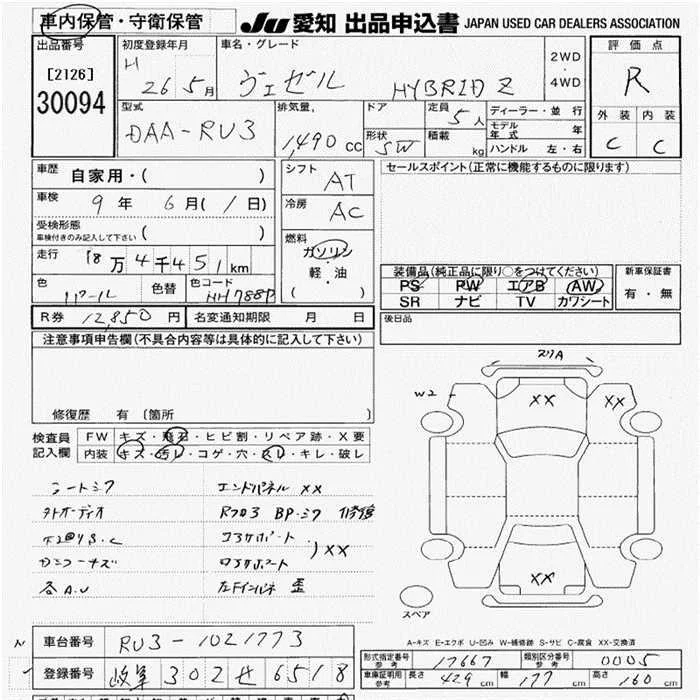 車内保管・守衛保管
JU 愛知 出品申込書 JAPAN USED CAR DEALERS ASSOCIATION
出品番号
[2126]
30094
初度登録年月
H 26 5月
車名・グレード
ヴェゼル HYBRID Z
2WD
・
4WD
評価点
R
外装 内装
C C
型式
DAA-RU3
排気量
1,490 cc
ドア
形状
SW
定員
5人
積載
kg
ディーラー・並行
モデル年式 年
ハンドル 左・右
車歴
自家用・( )
車検
9年 6月( / 日)
受検形態
車検付きのみ記入して下さい ( )
走行
18万4千451km
色
パール
色替
色コード
NH788P
シフト
AT
冷房
AC
燃料
ガソリン
・
軽・油
( )
セールスポイント(正常に機能するものに限ります)
装備品(純正品に限り○をつけてください)
PS PW エアB AW
SR ナビ TV カワシート
新車保証書
有・無
R券 12,850円
名変通知期限 月 日
後日品
注意事項申告欄(不具合内容等は具体的に記入して下さい)
修復歴 有〔箇所 〕
検査員記入欄
FW キズ・飛石・ヒビ割・リペア跡・X要
内装 キズ・汚レ・コゲ・穴・スレ・キレ・破レ
スリA
W2
XX
XX
XX
スペア
シートシワ
エンドパネル XX
外オーディオ
Rフロア BP・シワ 修復
コアサポート
ロアサポート
) XX
各A.U
左Fインパネ 歪
A-キズ E-エクボ U-凹み W-補修跡 S-サビ C-腐食 XX-交換済
車台番号
RU3-1021773
登録番号
岐阜 302 せ 6518
形式指定番号
参考
17667
類別区分番号
参考
0005
車庫証明用
参考
長さ 429cm
幅 177cm
高さ 160cm